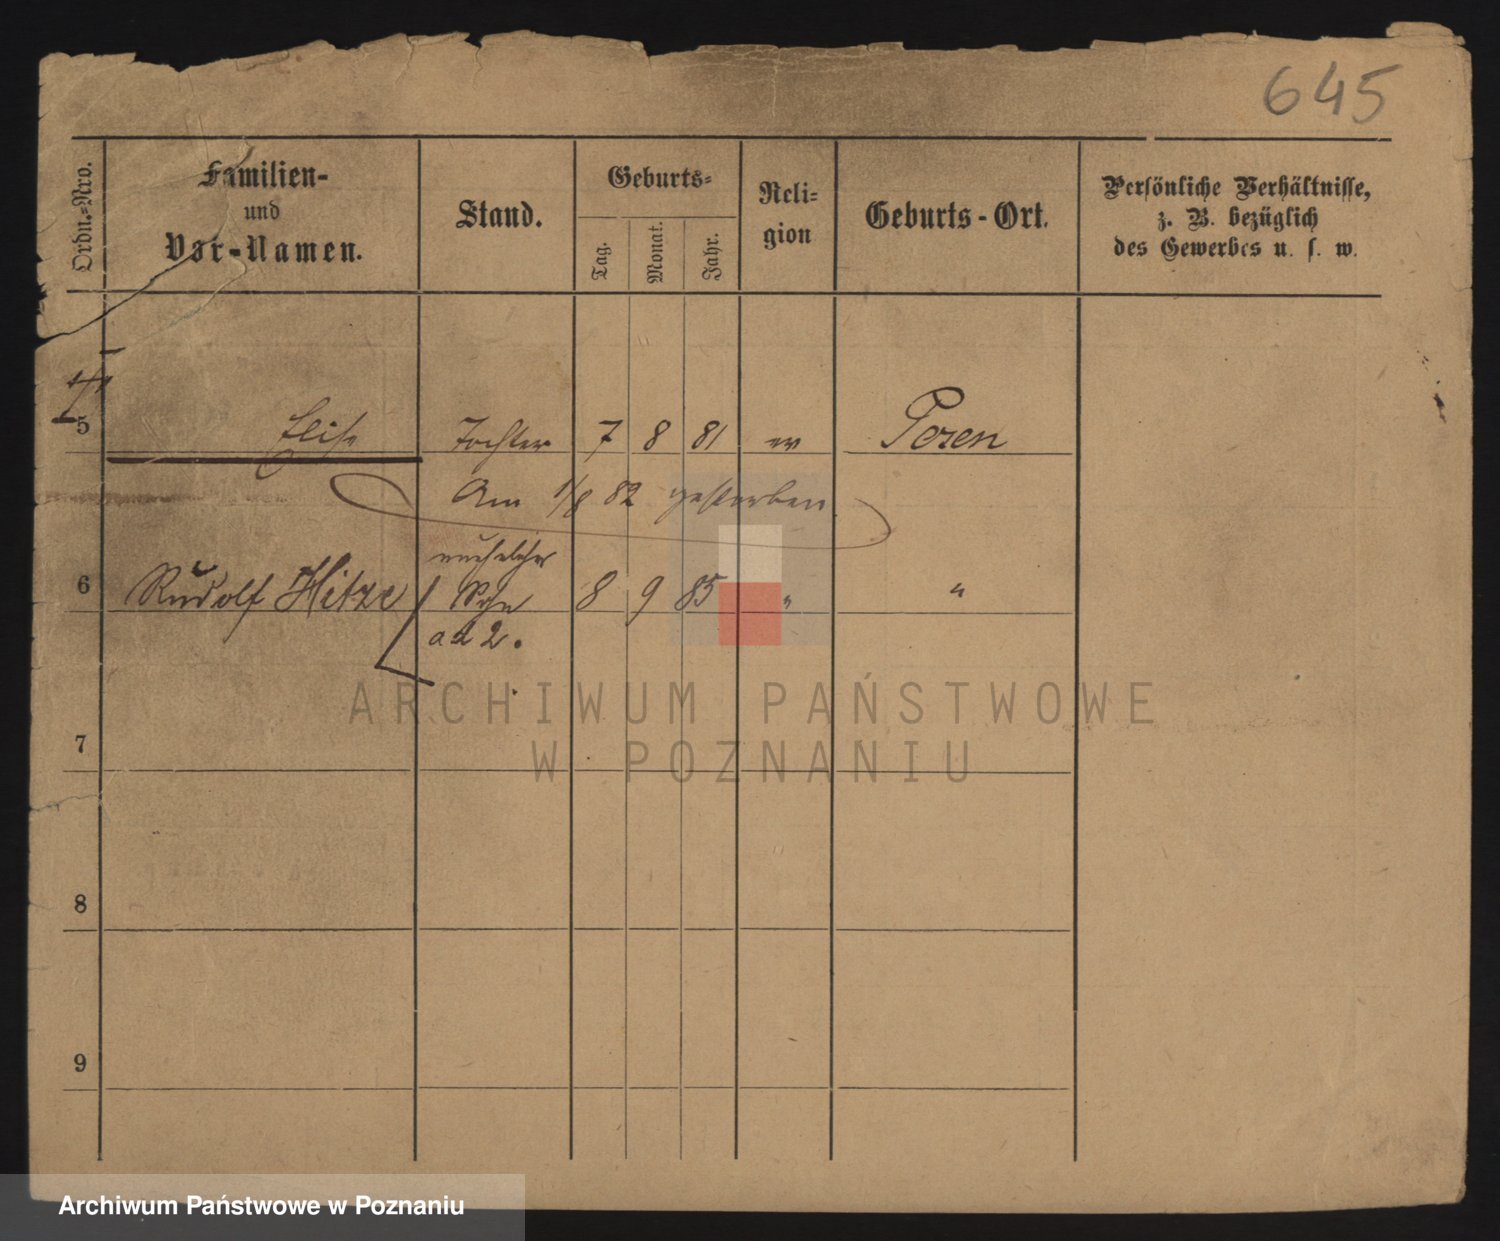 645
Ordn.-Nro.
Familien-
und
Vor-Namen.
Stand.
Geburts-
Tag.
Monat.
Jahr.
Reli-
gion
Geburts-Ort.
Persönliche Verhältnisse,
z. B. bezüglich
des Gewerbes u. s. w.
5 Elise Tochter 7 8 81 ev Posen
Am 1/8 82 gestorben.
unehelicher
6 Rudolf Hitze Sohn 8 9 85 " "
ad 2.
ARCHIWUM PAŃSTWOWE
W POZNANIU
7
8
9
Archiwum Państwowe w Poznaniu